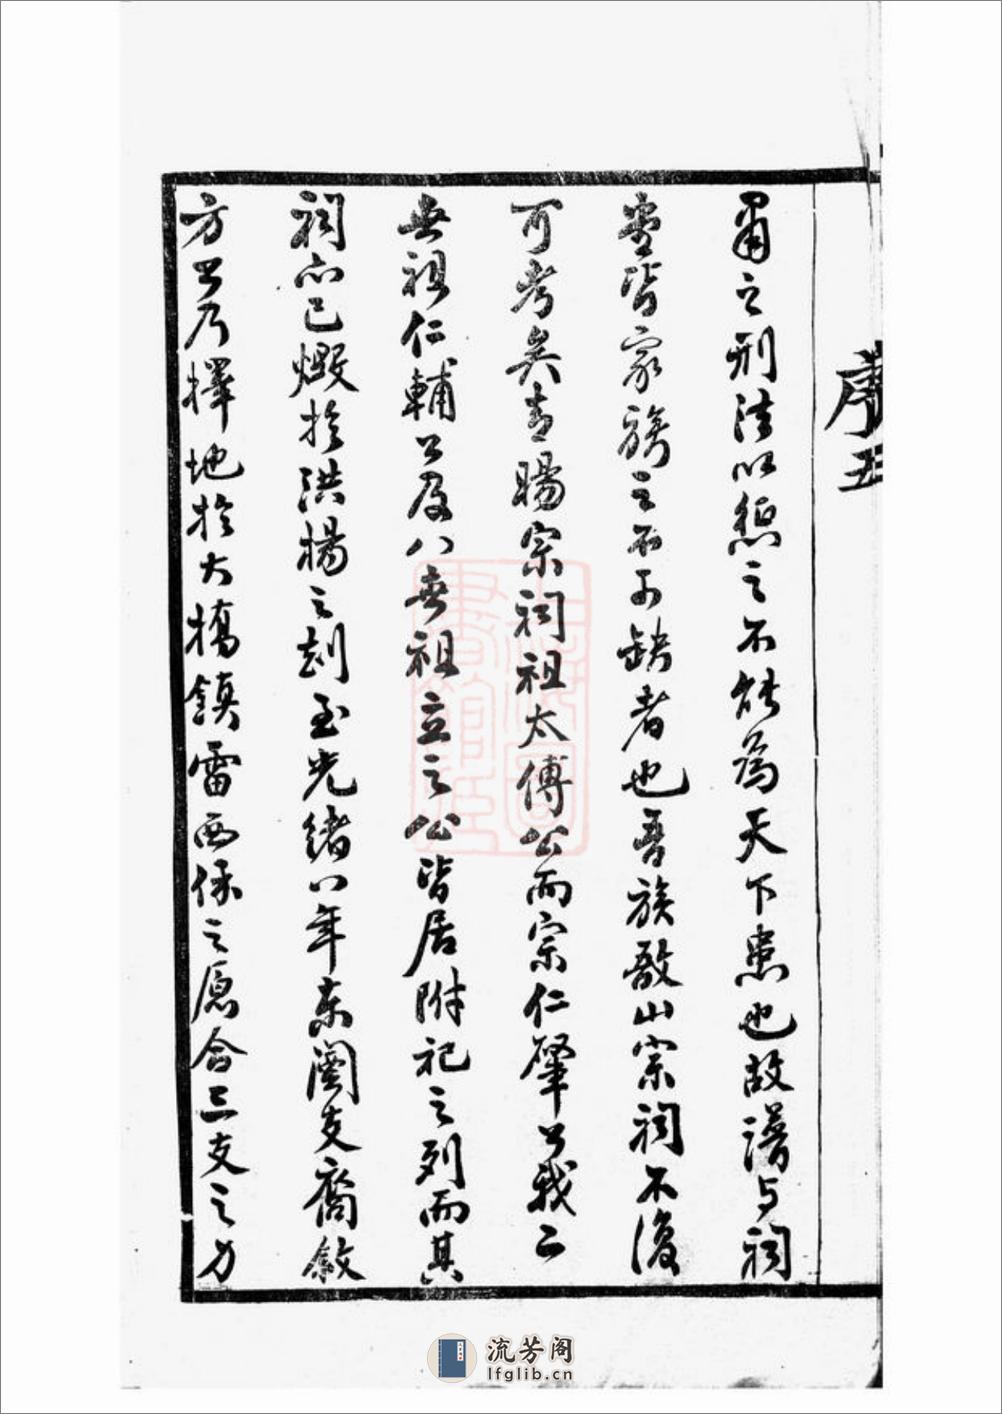 序 五
肅之刑法以懲之不能為天下患也故譜与祠
堂皆家族之不可缺者也吾族敔山宗祠不復
可考矣青暘宗祠祖太傅公而宗仁肇公我二
世祖仁輔公及八世祖立之公皆居附祀之列而其
祠亦已燬於洪楊之刦至光緒八年东園支裔敘
方公乃擇地於大橋鎮雷西保之愿合三支之力
流芳阁
lfglib.cn